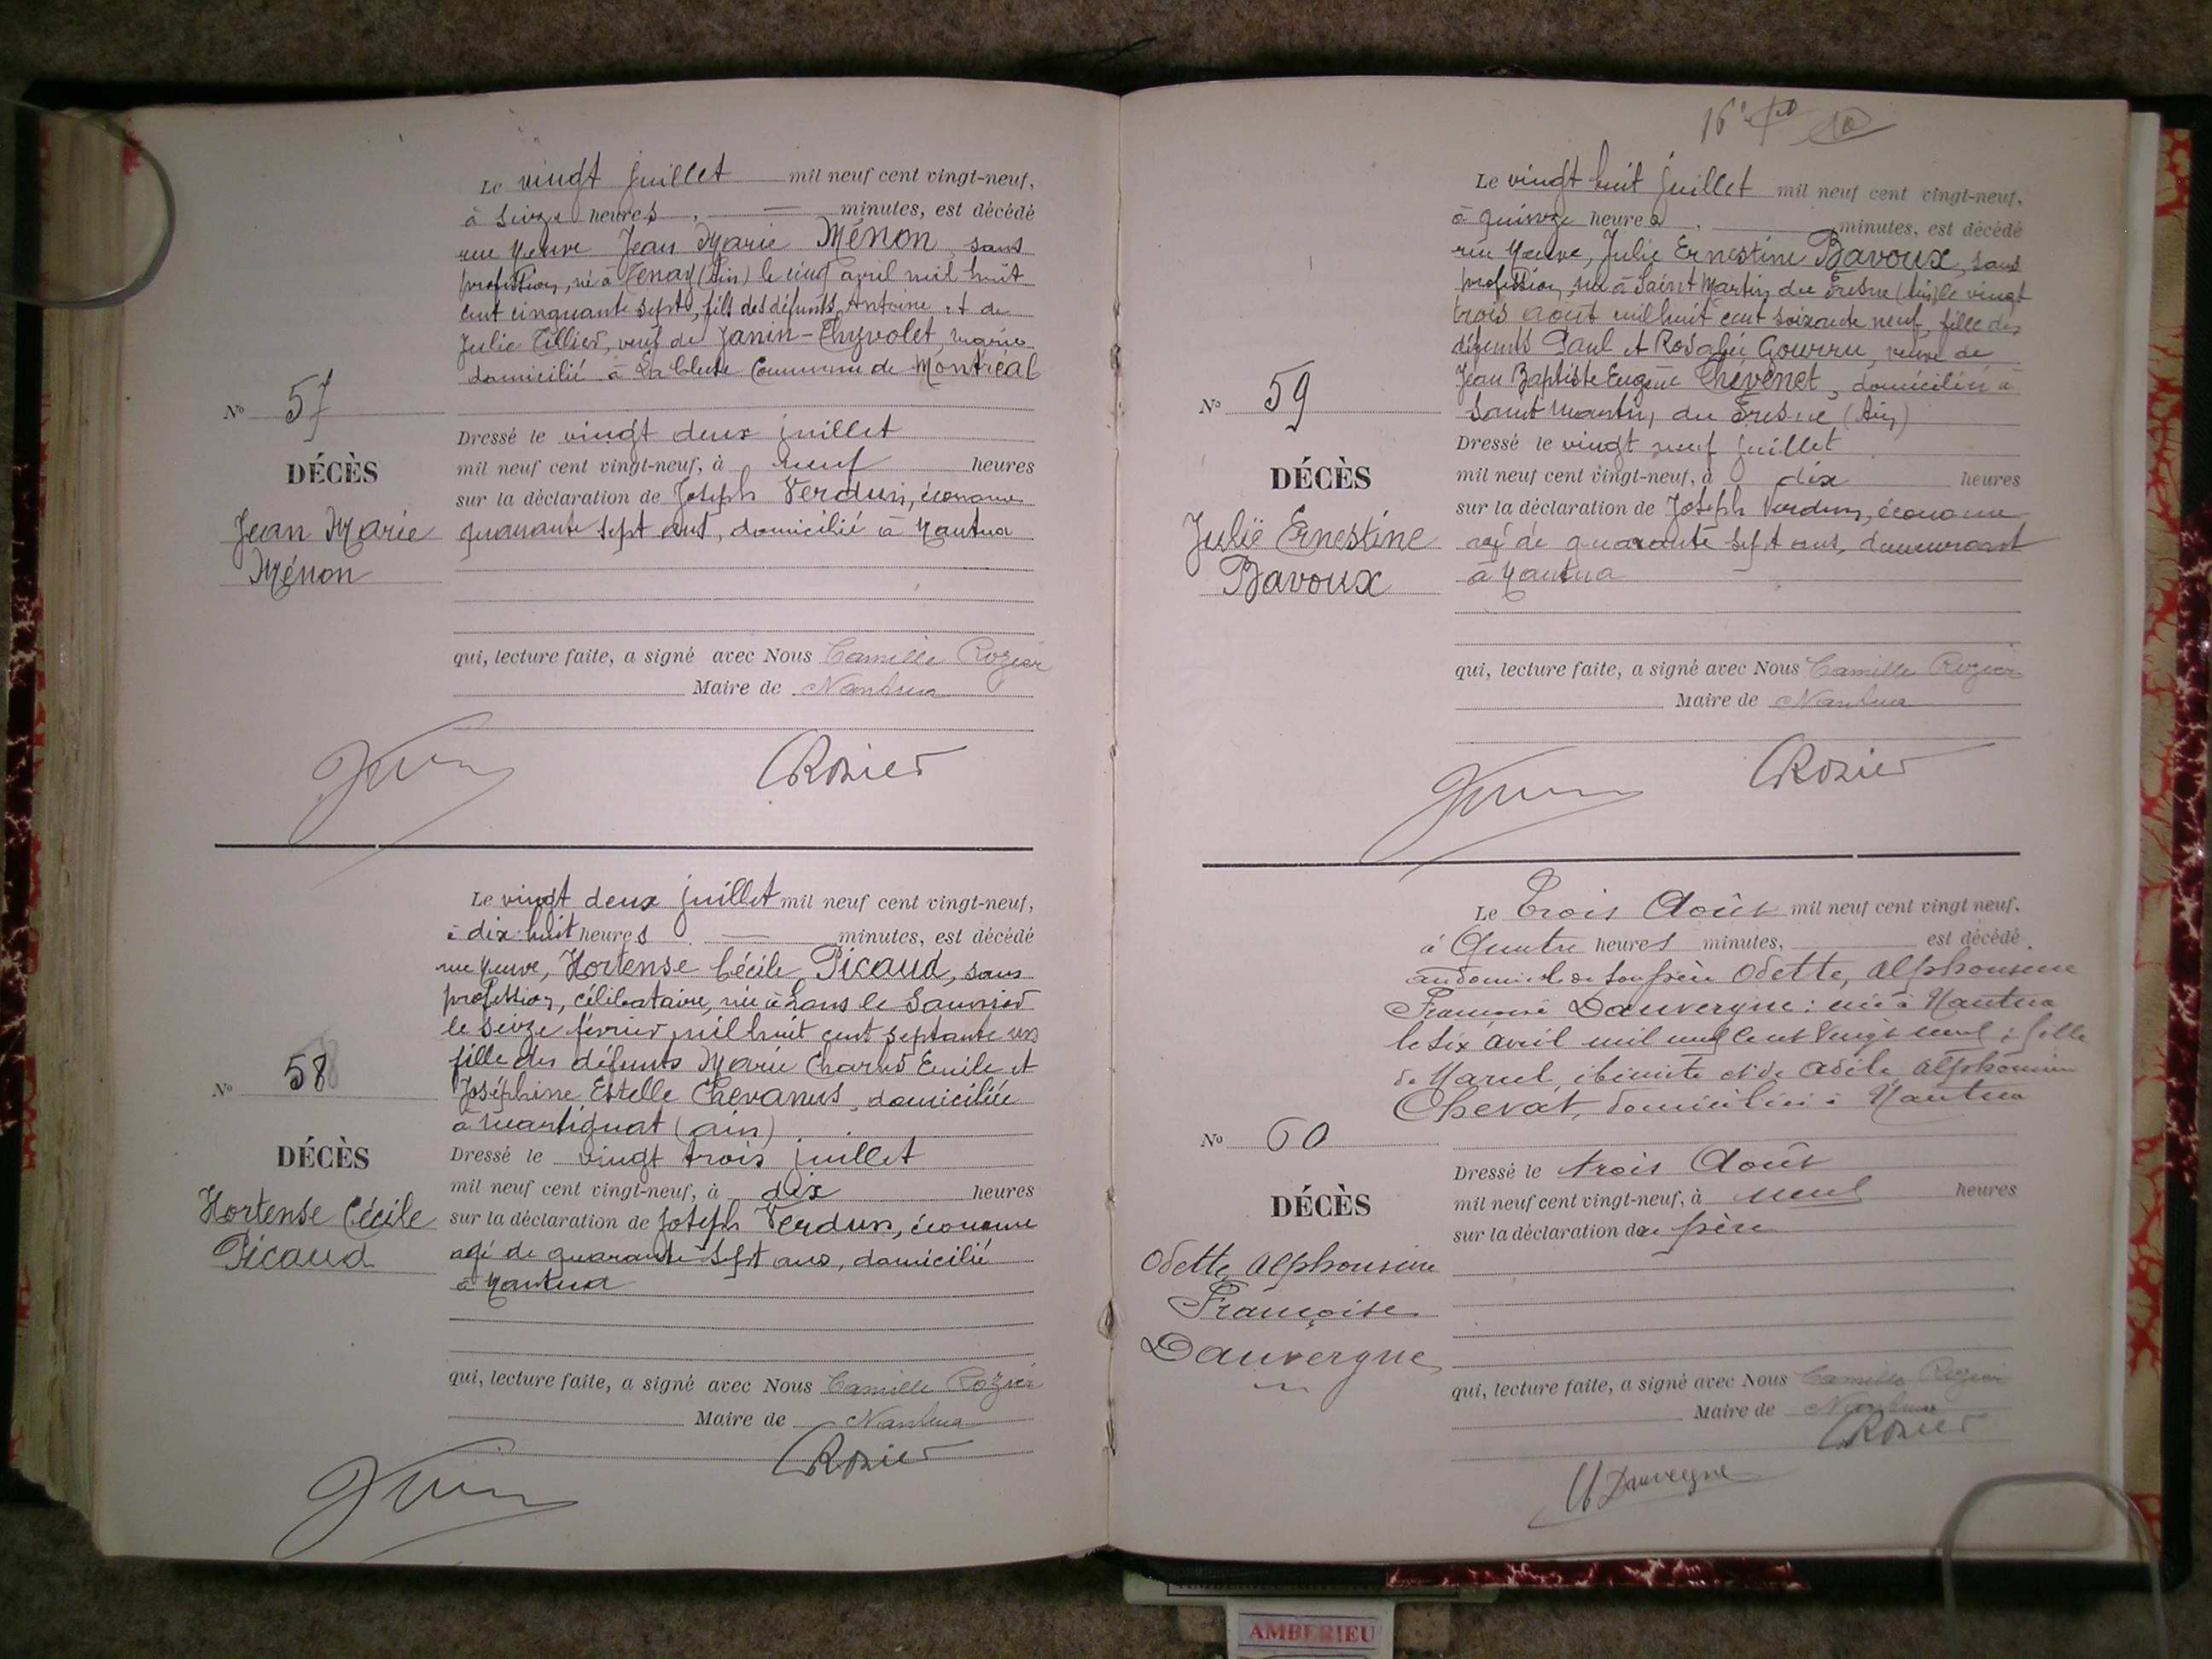 Le vingt juillet mil neuf cent vingt-neuf,
à seize heures, — minutes, est décédé
rue Neuve Jean Marie Ménon, sans
profession, né à Tenay (Ain) le cinq avril mil huit
cent cinquante sept, fils des défunts Antoine et de
Julie Tillier, veuf de Janin-Thyvolet, Marie
domicilié à La Cluse Commune de Montréal
No 57
DÉCÈS
Jean Marie
Ménon
Dressé le vingt deux juillet
mil neuf cent vingt-neuf, à neuf heures
sur la déclaration de Joseph Verdun, économe
quarante sept ans, domicilié à Nantua
qui, lecture faite, a signé avec Nous Camille Rozier
Maire de Nantua
CRozier
Le vingt deux juillet mil neuf cent vingt-neuf,
à dix huit heures — minutes, est décédé
rue Neuve, Hortense Cécile Picaud, sans
profession, célibataire, née à Lons le Saunier
le seize février mil huit cent septante un
fille des défunts Marie Charles Emile et
Joséphine Estelle Chevanus, domiciliée
à Martignat (ain)
No 58
DÉCÈS
Hortense Cécile
Picaud
Dressé le vingt trois juillet
mil neuf cent vingt-neuf, à dix heures
sur la déclaration de Joseph Verdun, économe
agé de quarante sept ans, domicilié
à Nantua
qui, lecture faite, a signé avec Nous Camille Rozier
Maire de Nantua
CRozier
16e
Le vingt huit juillet mil neuf cent vingt-neuf,
à quinze heures, minutes, est décédé
rue Neuve, Julie Ernestine Bavoux, sans
profession, née à Saint Martin du Fresne (Ain) le vingt
trois août mil huit cent soixante neuf, fille des
défunts Paul et Rosalie Gourru, veuve de
Jean Baptiste Eugène Thévenet, domiciliée à
Saint Martin du Fresne (Ain)
No 59
DÉCÈS
Julie Ernestine
Bavoux
Dressé le vingt neuf juillet
mil neuf cent vingt-neuf, à dix heures
sur la déclaration de Joseph Verdun, économe
agé de quarante sept ans, demeurant
à Nantua
qui, lecture faite, a signé avec Nous Camille Rozier
Maire de Nantua
CRozier
Le Trois Août mil neuf cent vingt neuf,
à Quatre heures minutes, est décédé
au domicile de son père Odette, Alphonsine
Françoise Dauvergne : née à Nantua
le six avril mil neuf cent vingt neuf ; fille
de Marcel, ébéniste et de Adèle Alphonsine
Chevat, domiciliée à Nantua
No 60
DÉCÈS
Odette Alphonsine
Françoise
Dauvergne
Dressé le trois Août
mil neuf cent vingt-neuf, à neuf heures
sur la déclaration du père
qui, lecture faite, a signé avec Nous Camille Rozier
Maire de Nantua
CRozier
M Dauvergne
AMBERIEU